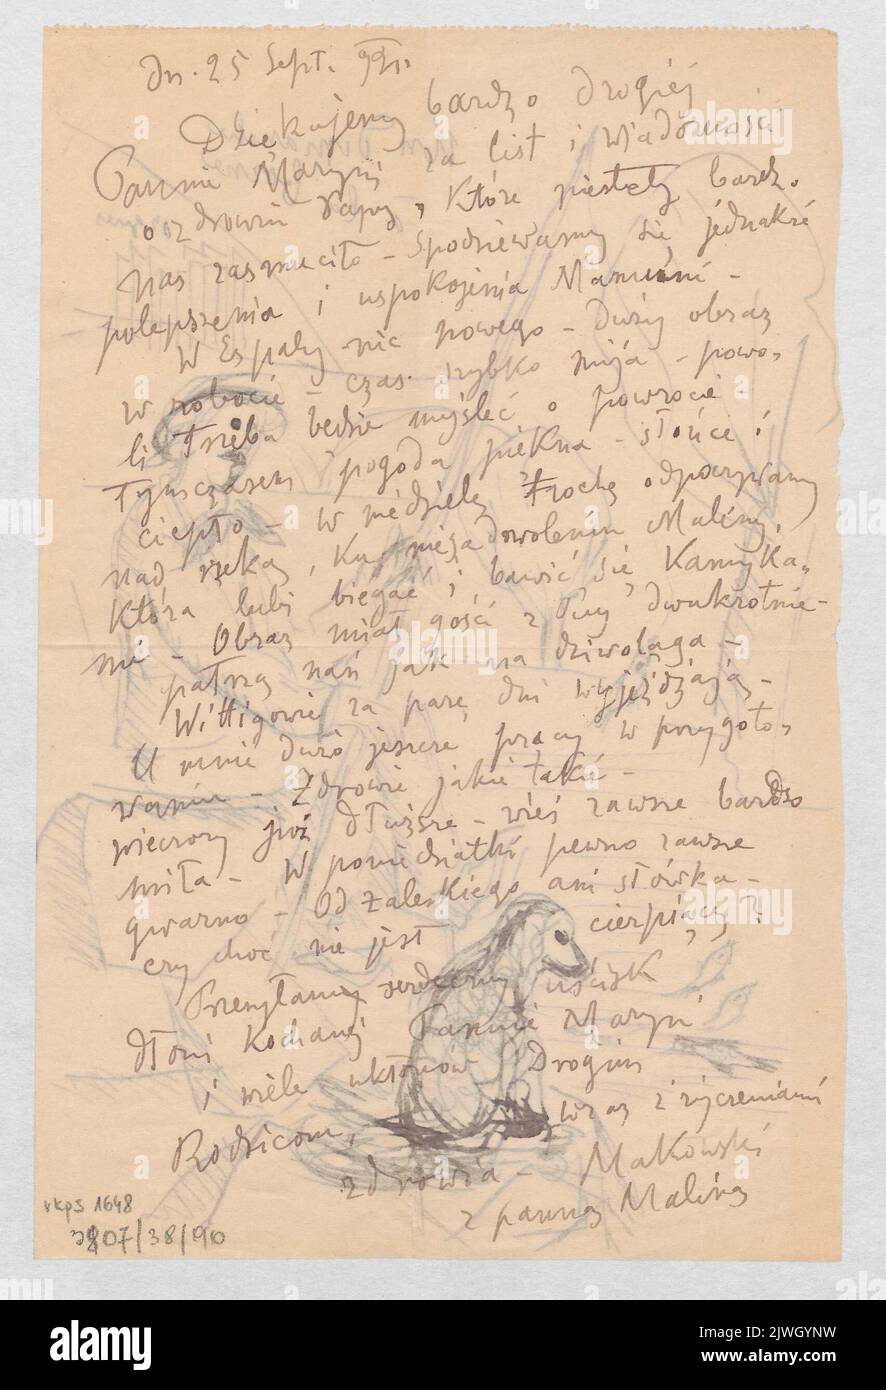 dn. 25 Sept.
Dziękujemy bardzo drogiej
Pannie Maryni za list i wiadomości
o zdrowiu Papy, które niestety bardzo
nas zasmuciło – Spodziewamy się jednakże
polepszenia i uspokojenia Mamuni –
W Espaly nic nowego – duży obraz
w robocie – czas szybko mija – powo,
li trzeba będzie myśleć o powrocie –
Tymczasem pogoda piękna – słońce i
ciepło – w niedzielę trochę odpoczywamy
nad rzeką, ku niezadowoleniu Maliny,
która lubi biegać i bawić się kamyka,
mi – Obraz miał gość z Puy dwukrotnie –
patrzą nań jak na dziwoląga –
Wittigowie za parę dni wyjeżdżają –
U mnie dużo jeszcze pracy w przygoto,
waniu – Zdrowie jakie takie –
wieczory już dłuższe – wieś zawsze bardzo
miła – W poniedziałki pewno zawsze
gwarno – Od Zaleskiego ani słówka –
czy choć nie jest cierpiący?
Przesyłamy serdeczny uścisk
dłoni kochanej Pannie Maryni
i wiele ukłonów Drogim
Rodzicom, wraz z życzeniami
zdrowia – Makowski
z panną Maliną
rkps 1648
/38/90
alamy
Image ID: 2WJGYNW
www.alamy.com